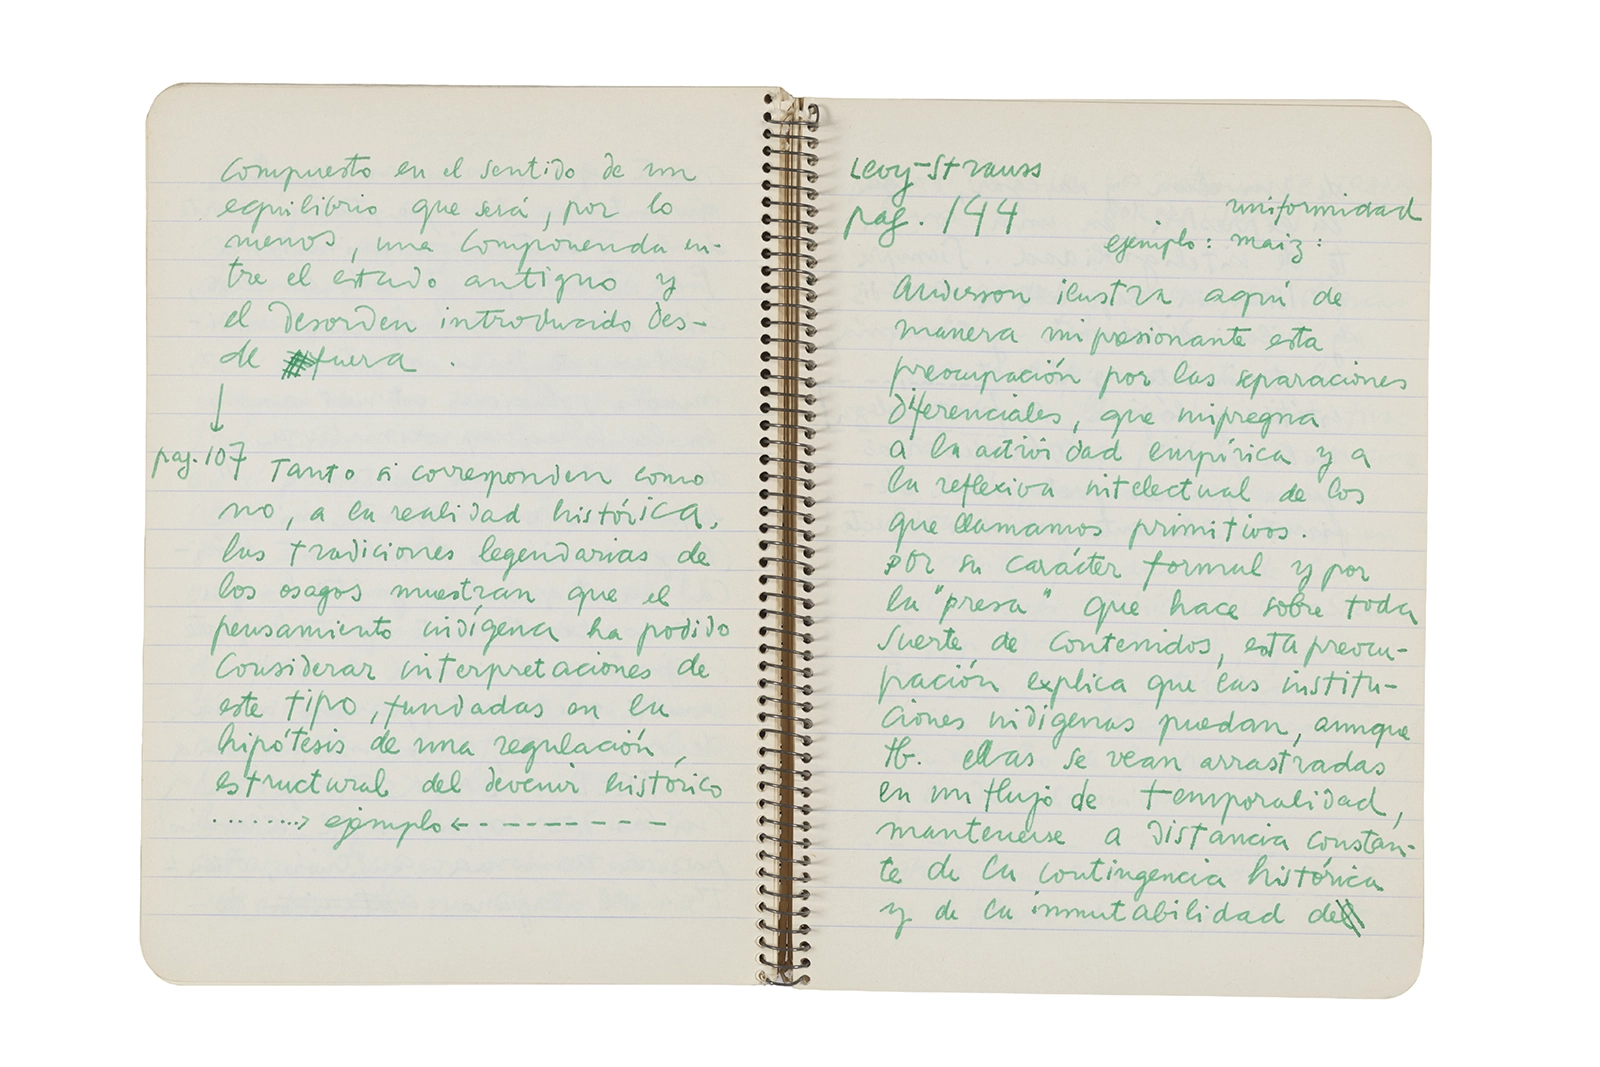 compuesto en el sentido de un
equilibrio que será, por lo
menos, una componenda en-
tre el estado antiguo y
el desorden introducido des-
de fuera.
pag. 107 Tanto si corresponden como
no, a la realidad histórica,
las tradiciones legendarias de
los osagos muestran que el
pensamiento indígena ha podido
considerar interpretaciones de
este tipo, fundadas en la
hipótesis de una regulación
estructural del devenir histórico
........> ejemplo <- - - - - - - - -
Levy-Strauss
pag. 144 uniformidad
ejemplo: maiz:
Anderson ilustra aquí de
manera impresionante esta
preocupación por las separaciones
diferenciales, que impregna
a la actividad empírica y a
la reflexiva intelectual de los
que llamamos primitivos.
por su carácter formal y por
la "presa" que hace sobre toda
suerte de contenidos, esta preocu-
pación explica que las institu-
ciones indígenas puedan, aunque
tb. ellas se vean arrastradas
en un flujo de temporalidad,
mantenerse a distancia constan-
te de la contingencia histórica
y de la inmutabilidad de